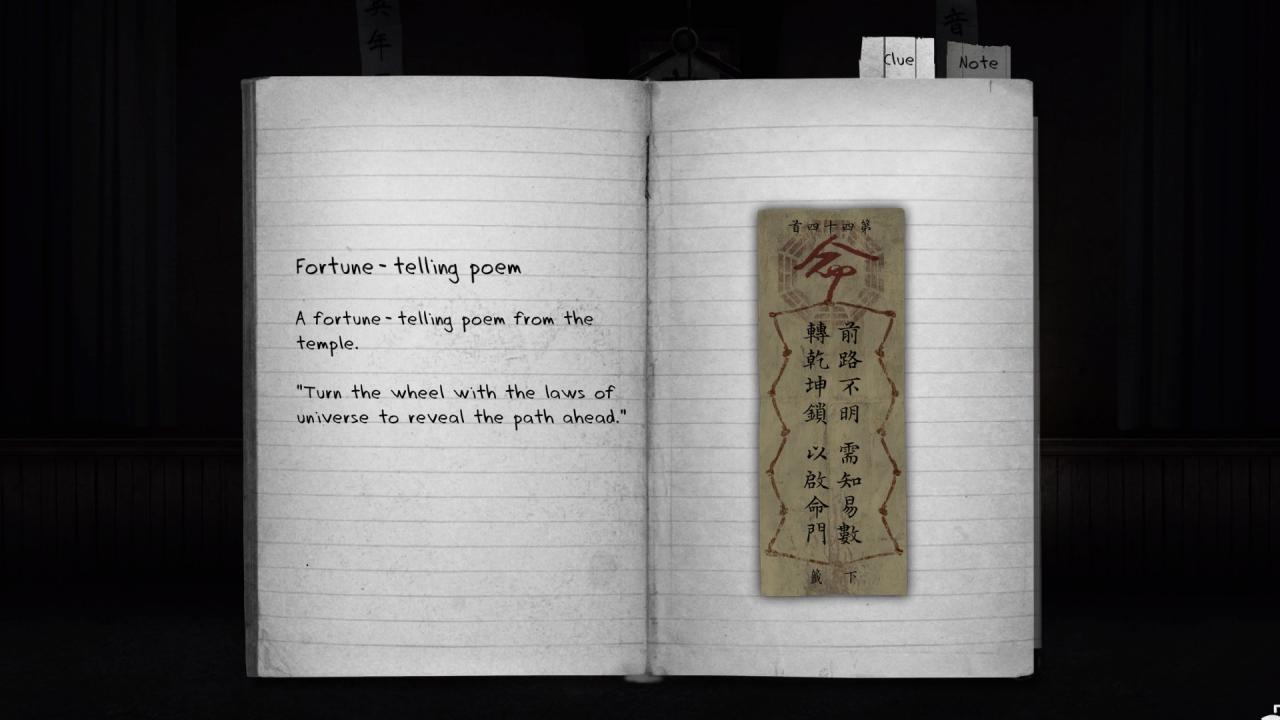 Clue
Note
英年
音
Fortune-telling poem
A fortune-telling poem from the
temple.
"Turn the wheel with the laws of
universe to reveal the path ahead."
第四十四首
命
前路不明 需知易數
轉乾坤鎖 以啟命門
下籤